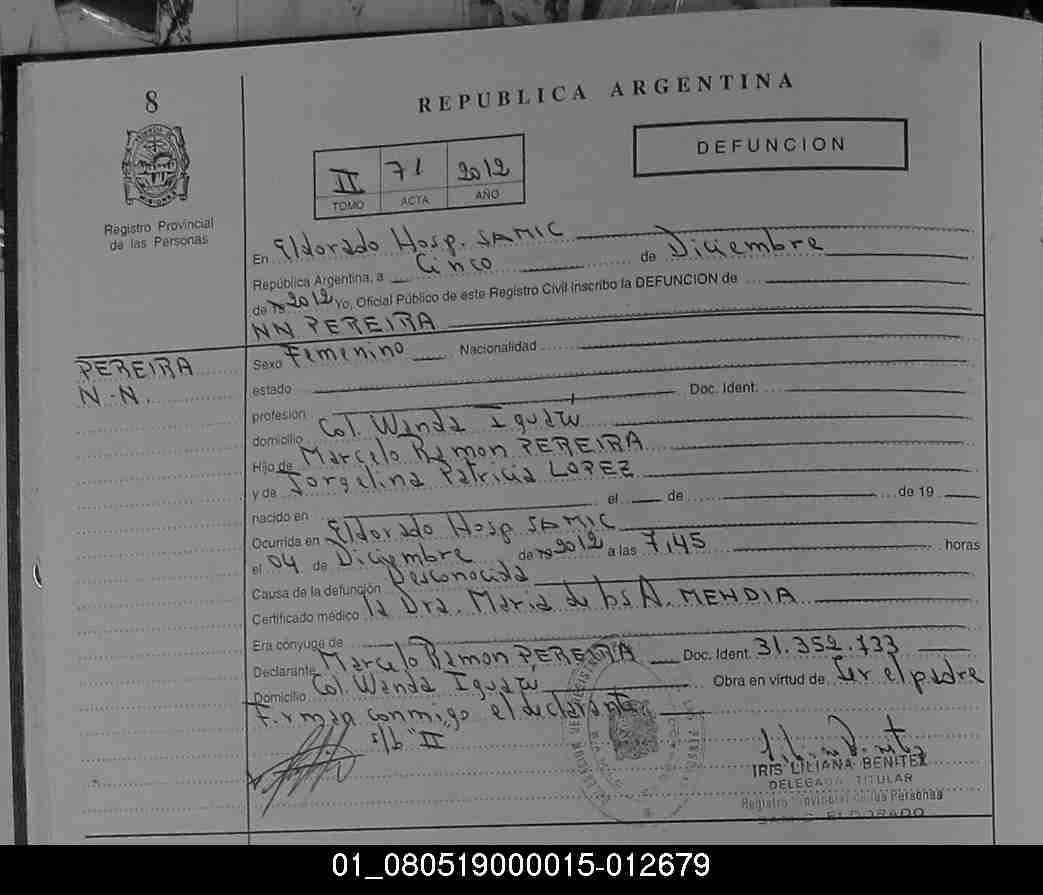 8
REPUBLICA ARGENTINA
DEFUNCION
II 71 2012
TOMO ACTA AÑO
Registro Provincial
de las Personas
En Eldorado Hosp. SAMIC
República Argentina, a Cinco de Diciembre
de 19 2012 Yo, Oficial Público de este Registro Civil inscribo la DEFUNCION de
NN PEREIRA
PEREIRA
N.N.
Sexo Femenino Nacionalidad
estado Doc. Ident.
profesión
domicilio Col. Wanda Iguazú
Hijo de Marcelo Ramon PEREIRA
y de Jorgelina Patricia LOPEZ
nacido en el de de 19
Ocurrida en Eldorado Hosp SAMIC
el 04 de Diciembre de 19 2012 a las 7,45 horas
Causa de la defunción Desconocida
Certificado médico la Dra. Maria de los A. MENDIA
Era cónyuge de
Declarante Marcelo Ramon PEREIRA Doc. Ident. 31.352.733
Domicilio Col. Wanda Iguazú Obra en virtud de Ser el padre
Firman conmigo el declarante
s/b "II"
IRIS LILIANA BENITEZ
DELEGADA TITULAR
Registro Provincial de las Personas
SAMIC ELDORADO
01_080519000015-012679